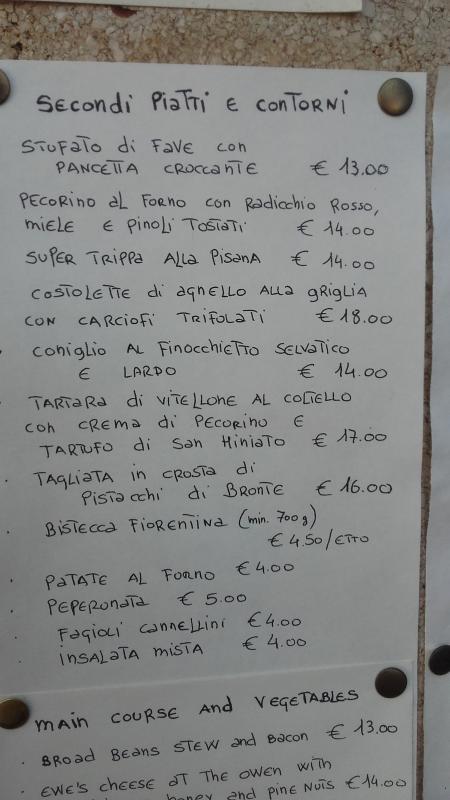 SECONDI PIATTI E CONTORNI
STUFATO di FAVE CON
PANCETTA CROCCANTE € 13.00
PECORINO AL FORNO CON RADICCHIO ROSSO,
MIELE E PINOLI TOSTATI € 14.00
SUPER TRIPPA ALLA PISANA € 14.00
COSTOLETTE di AGNELLO ALLA GRIGLIA
CON CARCIOFI TRIFOLATI € 18.00
CONIGLIO AL FINOCCHIETTO SELVATICO
E LARDO € 14.00
TARTARA di VITELLONE AL COLTELLO
CON CREMA di PECORINO E
TARTUFO di SAN MINIATO € 17.00
TAGLIATA in CROSTA di
PISTACCHI di BRONTE € 16.00
BISTECCA FIORENTINA (min. 700 g)
€ 4.50/ETTO
PATATE AL FORNO € 4.00
PEPERONATA € 5.00
FAGIOLI CANNELLINI € 4.00
INSALATA MISTA € 4.00
MAIN COURSE AND VEGETABLES
BROAD BEANS STEW and BACON € 13.00
EWE'S CHEESE AT THE OWEN WITH
honey and pine NUTS € 14.00